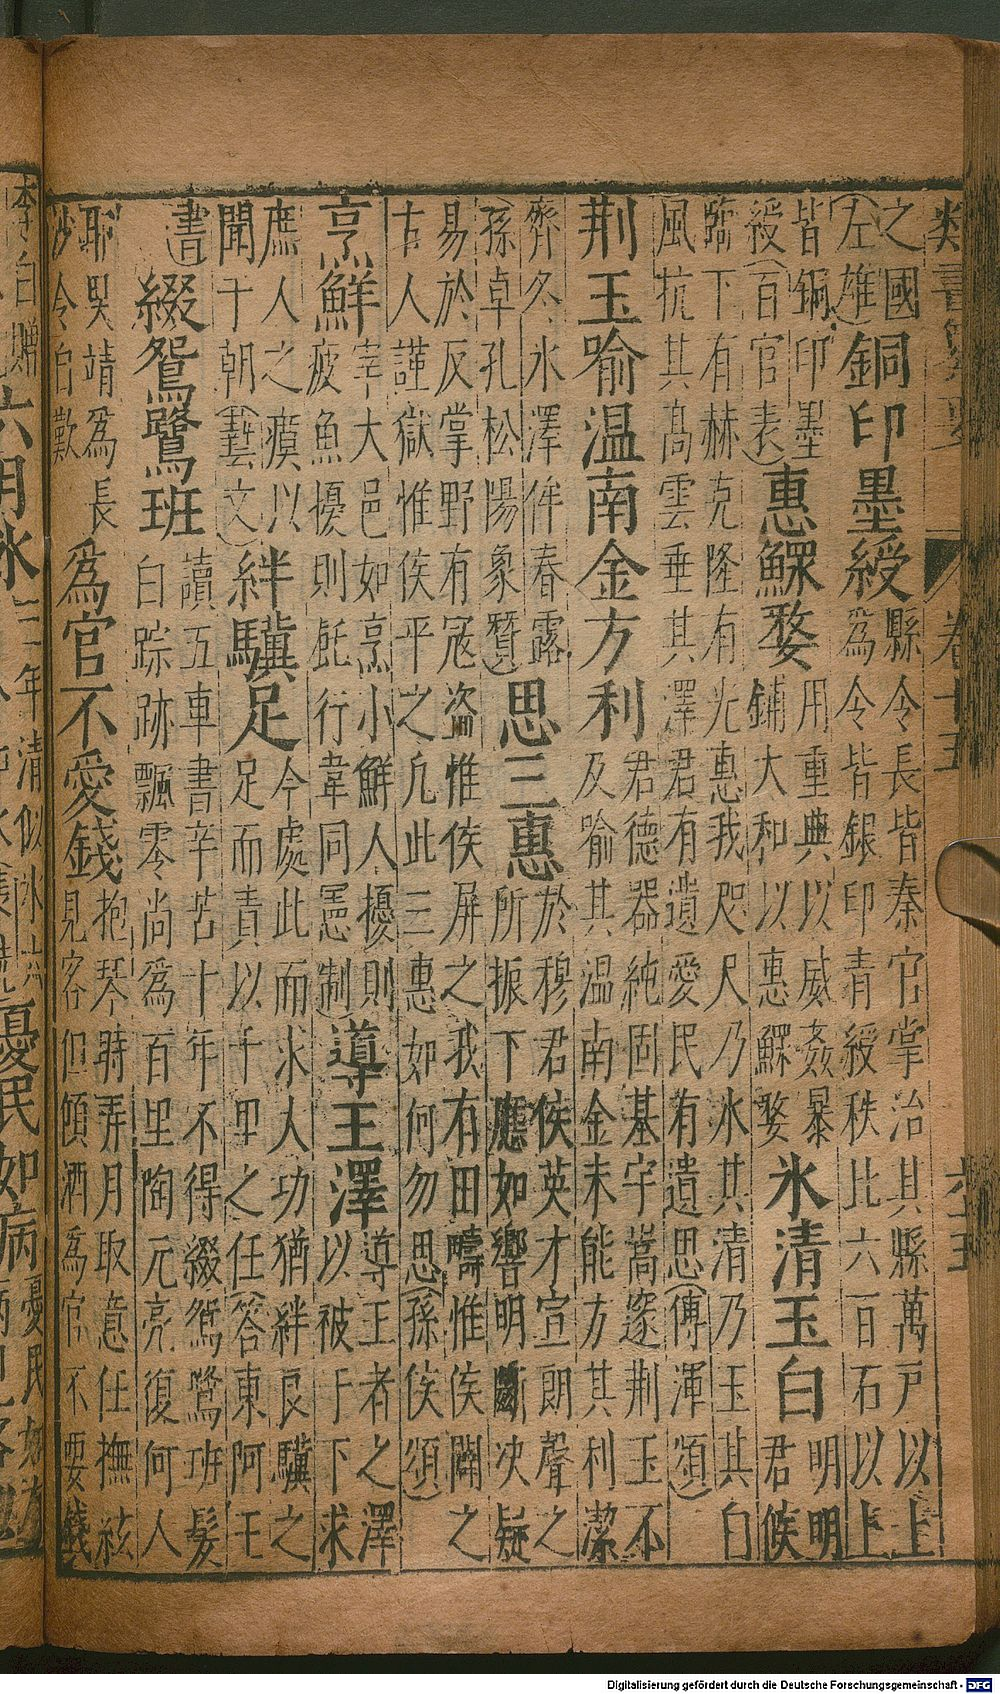 類書纂要 卷十五
之國
(左雄)
銅印墨綬
縣令長皆秦官掌治其縣萬戶以上
為令皆銀印青綬秩比六百石以上
皆銅印墨
綬(百官表)
惠鰥嫠
用重典以威姦暴
鋪大和以惠鰥嫠
氷清玉白
明明
君侯
臨下有赫克隆有光惠我咫尺乃氷其清乃玉其白
風抗其高雲垂其澤君有遺愛民有遺思(傅渾頌)
荆玉喻温南金方利
君德器純固基宇嵩邃荆玉不
及喻其温南金未能方其利潔
齊冬氷澤侔春露
(孫卓孔松陽象贊)
思三惠
於穆君侯英才宣朗聲之
所振下應如響明斷决疑
易於反掌野有冦盜惟侯屏之我有田疇惟侯闢之
古人謹獄惟侯平之凢此三惠如何勿思(孫侯頌)
烹鮮
宰大邑如烹小鮮人擾則
疲魚擾則 行韋同憲制
導王澤
導王者之澤
以被于下求
庶人之瘼以
聞于朝(藝文)
絆驥足
今處此而求人功猶絆良驥之
足而責以千里之任(答東阿王
書)
綴鴛鷺班
讀五車書辛苦十年不得綴鴛鷺班髮
白踪跡飄零尚為百里陶元亮復何人
耶吳靖為長
沙令白歎
為官不愛錢
抱琴時弄月取意任撫絃
見客但傾酒為官不要錢
李白贈
六月氷
憂民如病
Digitalisierung gefördert durch die Deutsche Forschungsgemeinschaft - DFG